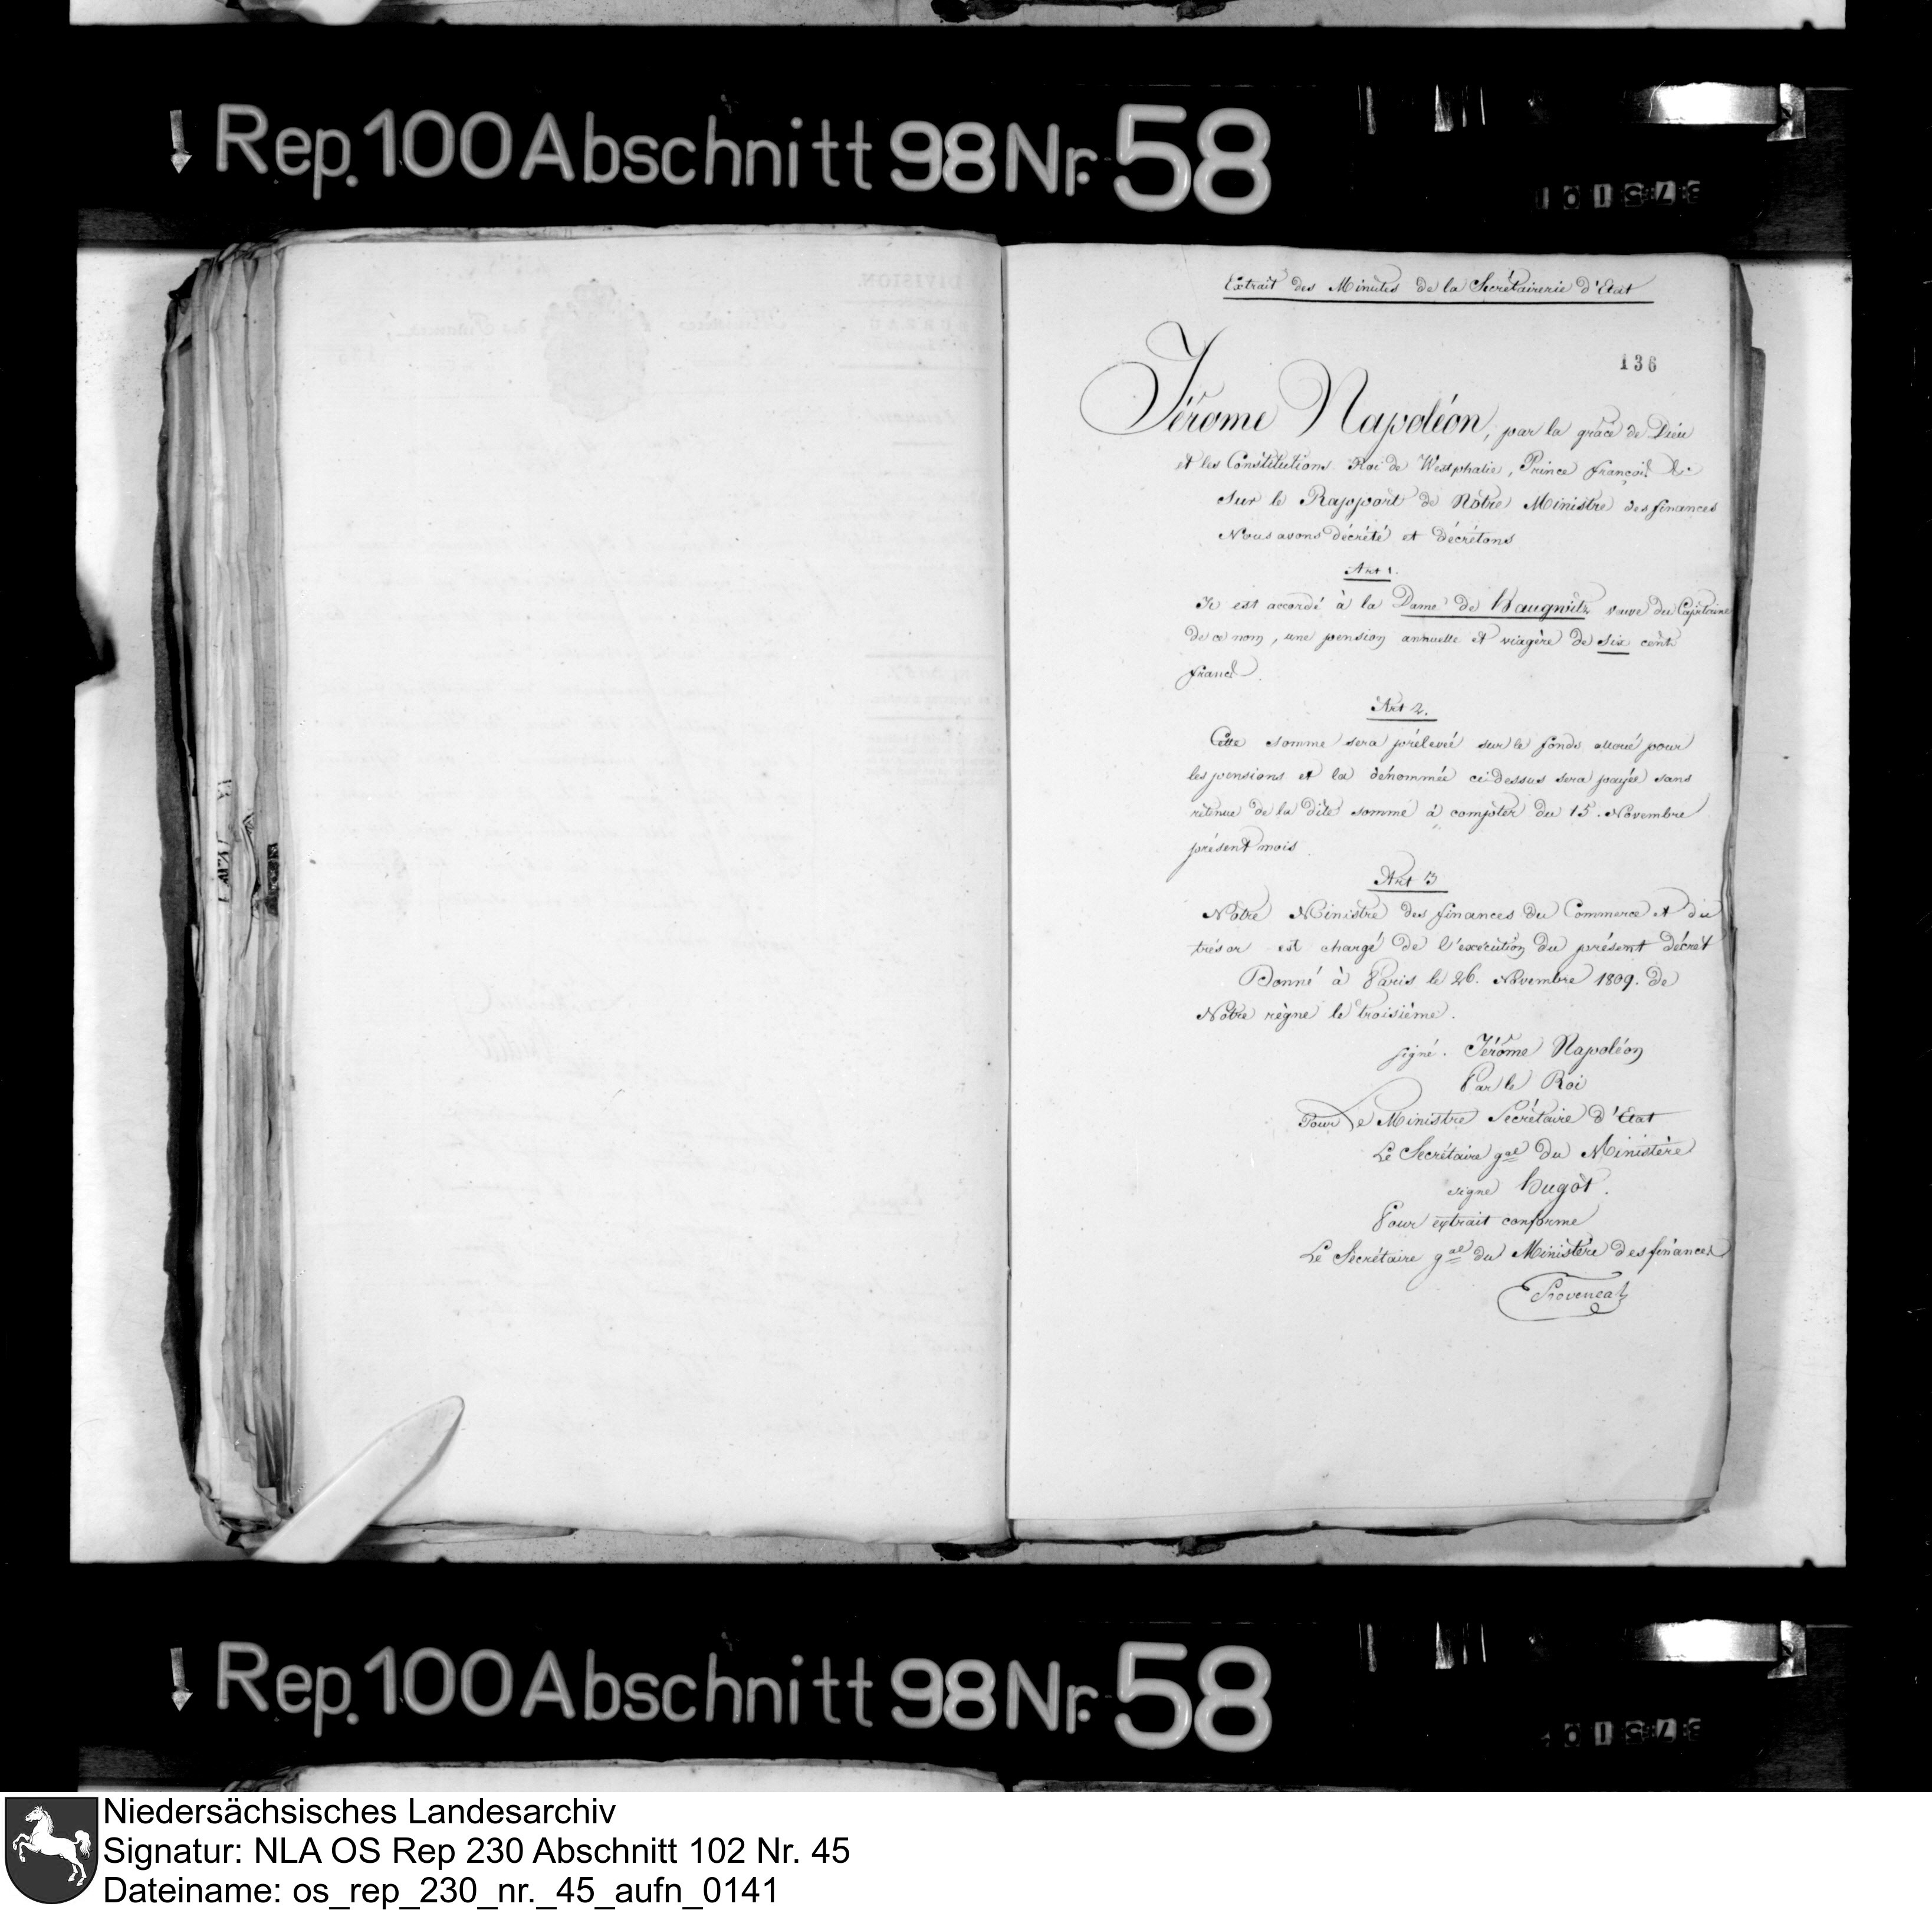 Rep. 100 Abschnitt 98 Nr. 58
Extrait des Minutes de la Secrétairerie d'Etat
136
Jérome Napoléon, par la grace de Dieu
et les Constitutions Roi de Westphalie, Prince françois &c
Sur le Rapport de Notre Ministre des finances
Nous avons décrété et décrétons
Art 1.
Il est accordé à la Dame de Haugwitz veuve du Capitaine
de ce nom, une pension annuelle et viagère de six cents
francs.
Art 2.
Cette somme sera prélevée sur le fonds alloué pour
les pensions et la dénommée ci-dessus sera payée sans
retenue de la dite somme à compter du 15. Novembre
présent mois.
Art 3
Notre Ministre des finances du Commerce et du
trésor est chargé de l'exécution du présent décret
Donné à Paris le 26. Novembre 1809. de
Notre règne le troisième.
signé. Jérôme Napoléon
Par le Roi
Pour Le Ministre Secrétaire d'Etat
Le Secrétaire gal du Ministère
signé Hugot.
Pour extrait conforme
Le Secrétaire gal du Ministère des finances
Provençal
DIVISION.
BUREAU
Ministère des Finances
Rep. 100 Abschnitt 98 Nr. 58
Niedersächsisches Landesarchiv
Signatur: NLA OS Rep 230 Abschnitt 102 Nr. 45
Dateiname: os_rep_230_nr._45_aufn_0141